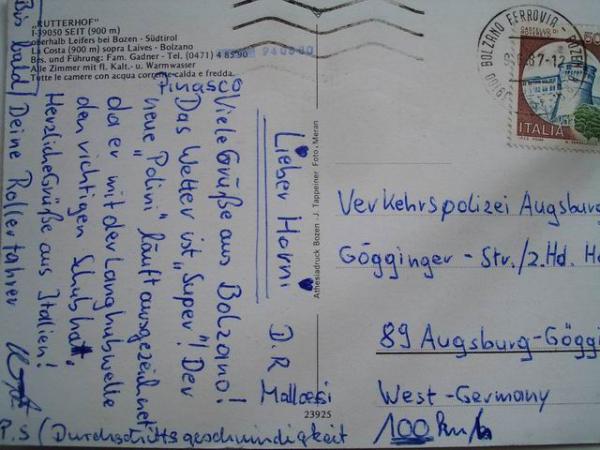 „RUTTERHOF“
I-39050 SEIT (900 m)
oberhalb Leifers bei Bozen - Südtirol
La Costa (900 m) sopra Laives - Bolzano
Bes. und Führung: Fam. Gadner - Tel. (0471) 4 85 90
Alle Zimmer mit fl. Kalt.- u. Warmwasser
Tutte le camere con acqua corrente calda e fredda.
Lieber Horni
Pinasco
Viele Grüße aus Bolzano!
Das Wetter ist „Super“! Der
neue „Polini“ läuft ausgezeichnet
da er mit der Langhubwelle
den richtigen Schub hat.
Herzliche Grüße aus Italien!
Bis bald, Deine Rollerfahrer
D. R
P.S (Durchschnittsgeschwindigkeit
100 km/h
Athesiadruck Bozen - J. Tappeiner Foto, Meran
23925
BOLZANO FERROVIA
ITALIA
Verkehrspolizei Augsburg
Gögginger - Str./2.Hd. Ho
89 Augsburg-Göggi
West-Germany